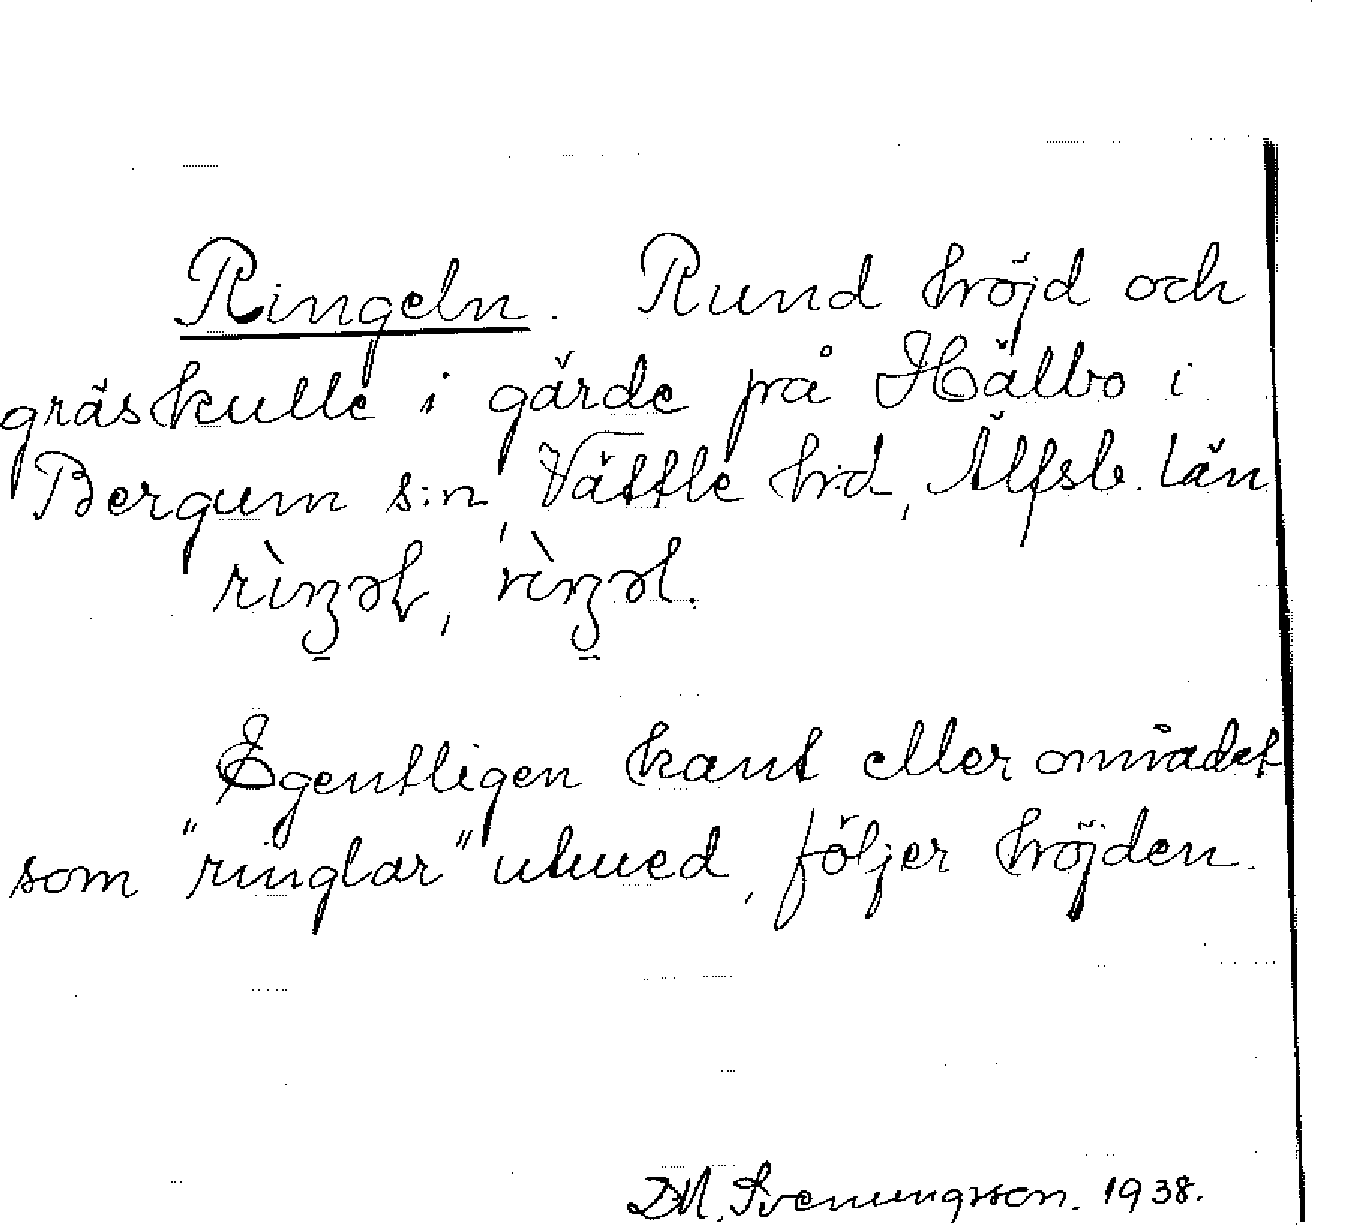 Ringeln. Rund höjd och
gräskulle i gärde på Hälbo i
Bergum s:n, Vättle hrd, Älfsb. län
Egentligen kant eller området
som "ringlar" utmed, följer höjden.
D.M. Svenungsson. 1938.